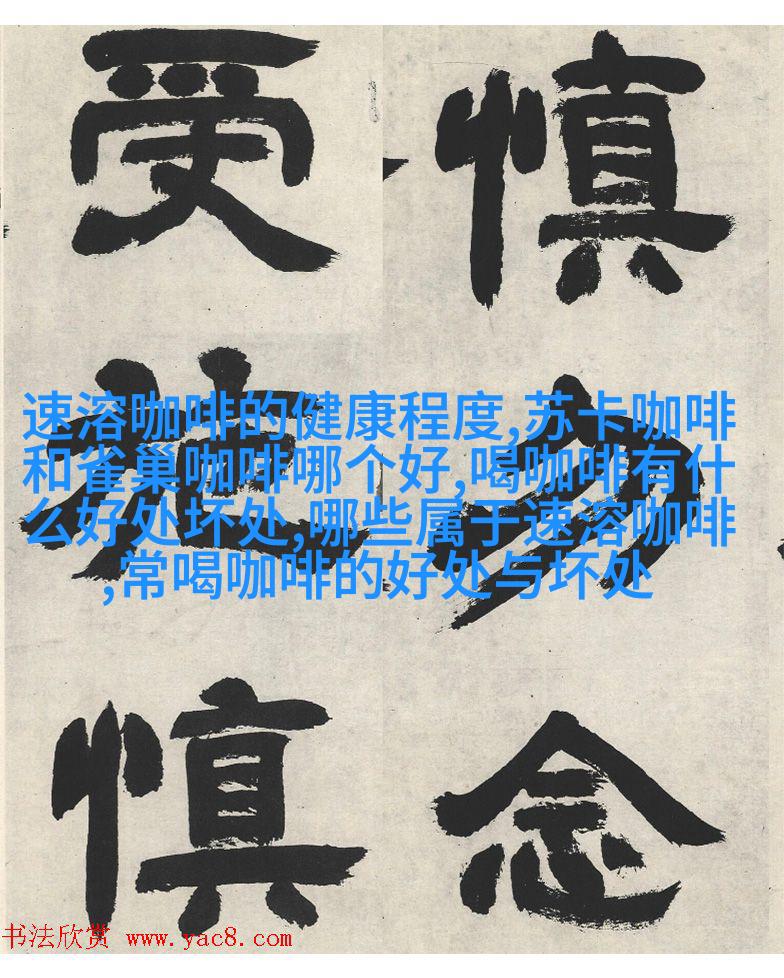 慎勿念
受施慎
速溶咖啡的健康程度,苏卡咖啡
和雀巢咖啡哪个好,喝咖啡有什
么好处坏处,哪些属于速溶咖啡
,常喝咖啡的好处与坏处
书法欣赏 www.yac8.com